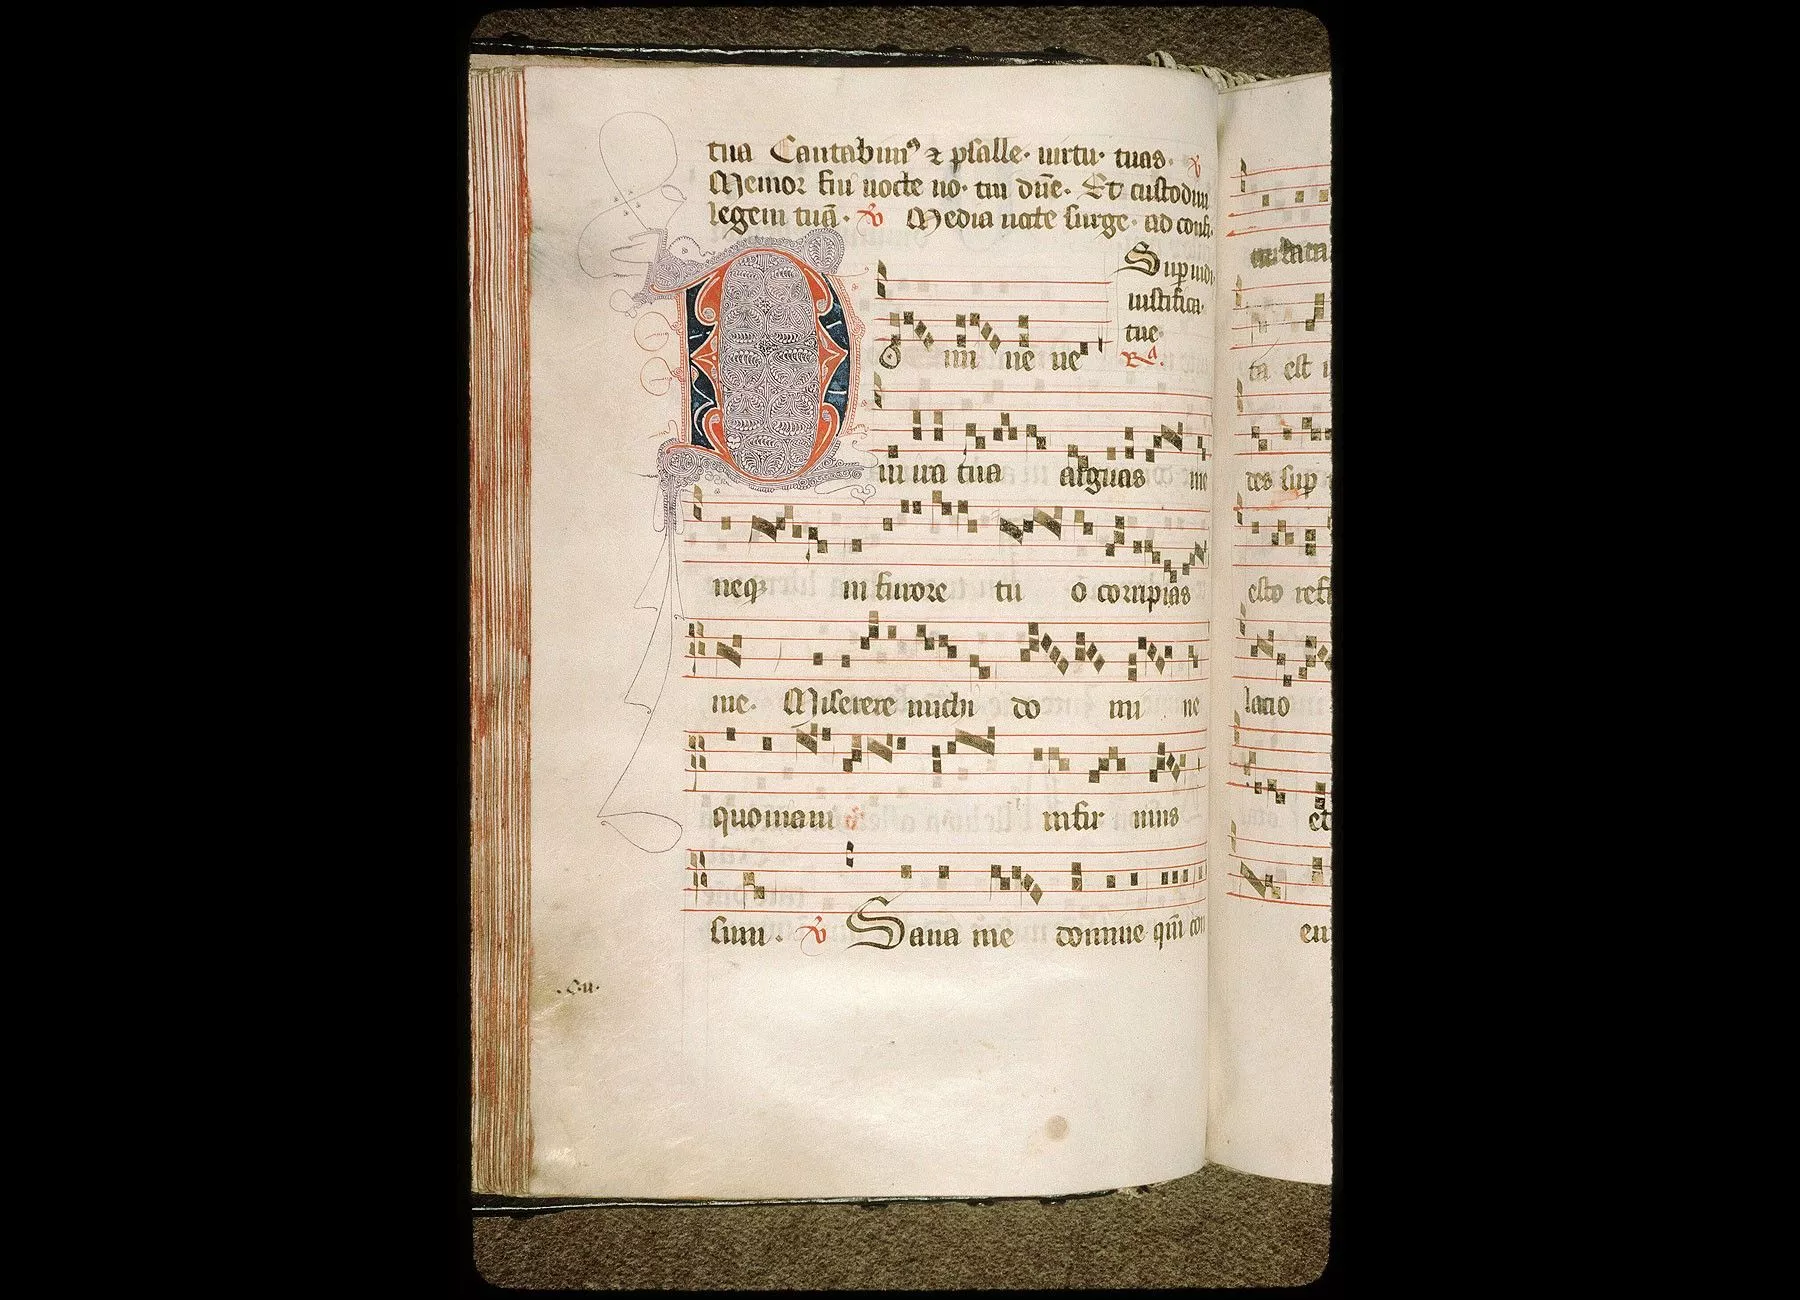 tua Cantabimꝰ ⁊ psalle· uirtu· tuas· ℣
Memor fui nocte no· tui dñe· Et custodiui
legem tuã· ℣ Media nocte surge· ad confi·
Sup iudi
iustifica·
tue·
D o mi ne ne Rᵃ·
in ira tua arguas me
neqꝫ in furore tu o corripias
me· Miserere michi do mi ne
quoniam infir mus
sum· ℣ Salua me domine qm̃ con
ta est
des sup
esto refu
latio
et
eu
.C.ii.